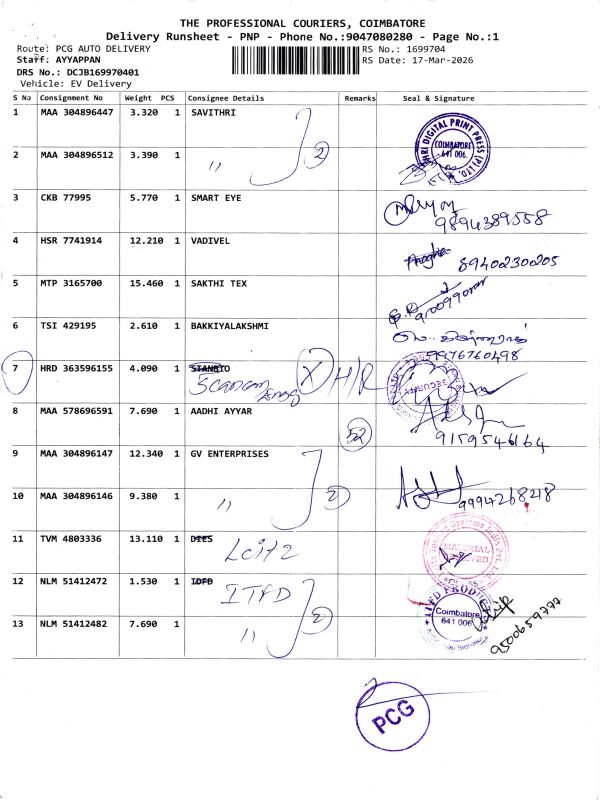 THE PROFESSIONAL COURIERS, COIMBATORE
Delivery Runsheet - PNP - Phone No.:9047080280 - Page No.:1
Route: PCG AUTO DELIVERY
RS No.: 1699704
Staff: AYYAPPAN
RS Date: 17-Mar-2026
DRS No.: DCJB169970401
Vehicle: EV Delivery
S No Consignment No Weight PCS Consignee Details Remarks Seal & Signature
1 MAA 304896447 3.320 1 SAVITHRI
SHRI DIGITAL PRINT PRESS (P) LTD.
COIMBATORE
641 006.
2 MAA 304896512 3.390 1 〃 2
3 CKB 77995 5.770 1 SMART EYE
9894389558
4 HSR 7741914 12.210 1 VADIVEL
8940230205
5 MTP 3165700 15.460 1 SAKTHI TEX
6 TSI 429195 2.610 1 BAKKIYALAKSHMI
9976760498
7 HRD 363596155 4.090 1 STANBTO X H/R
SECURITY
8 MAA 578696591 7.690 1 AADHI AYYAR 52
9159546164
9 MAA 304896147 12.340 1 GV ENTERPRISES
10 MAA 304896146 9.380 1 〃 2
9994268218
11 TVM 4803336 13.110 1 DIES
MATERIAL
12 NLM 51412472 1.530 1 IDFD
ITFD
Coimbatore
641 006
13 NLM 51412482 7.690 1 〃 2
9500659777
PCG